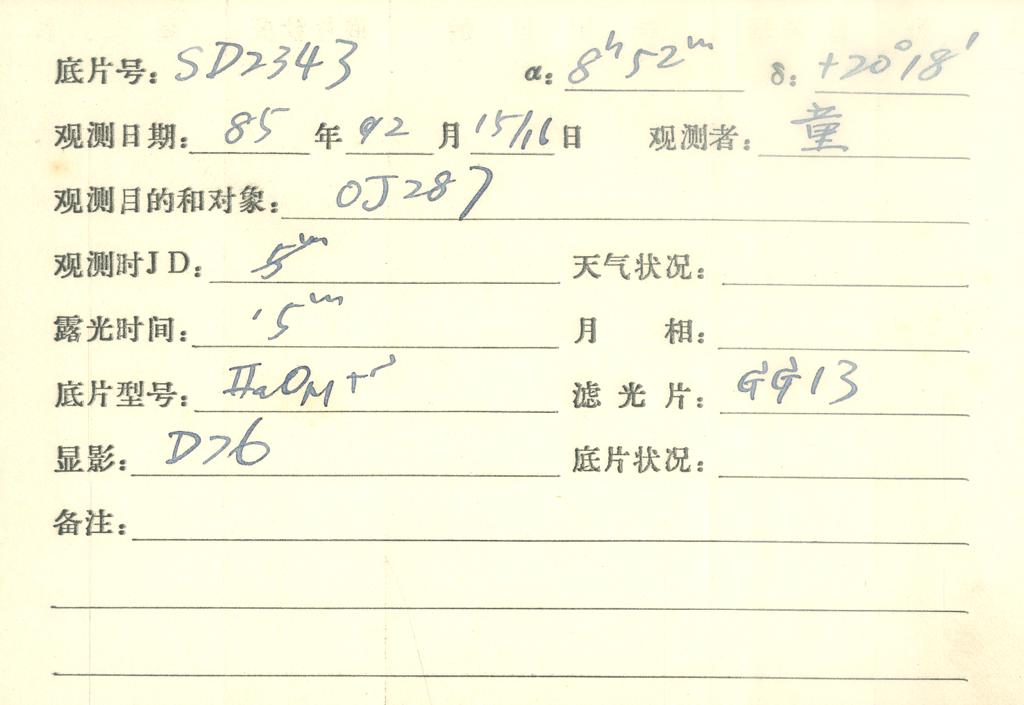 底片号: SD2343 α: 8ʰ52ᵐ δ: +20°18′
观测日期: 85 年 02 月 15/16 日 观测者: 童
观测目的和对象: OJ287
观测时JD: 天气状况:
露光时间: 15ᵐ 月 相:
底片型号: IIaO 滤光片: GG13
显影: D76 底片状况:
备注: